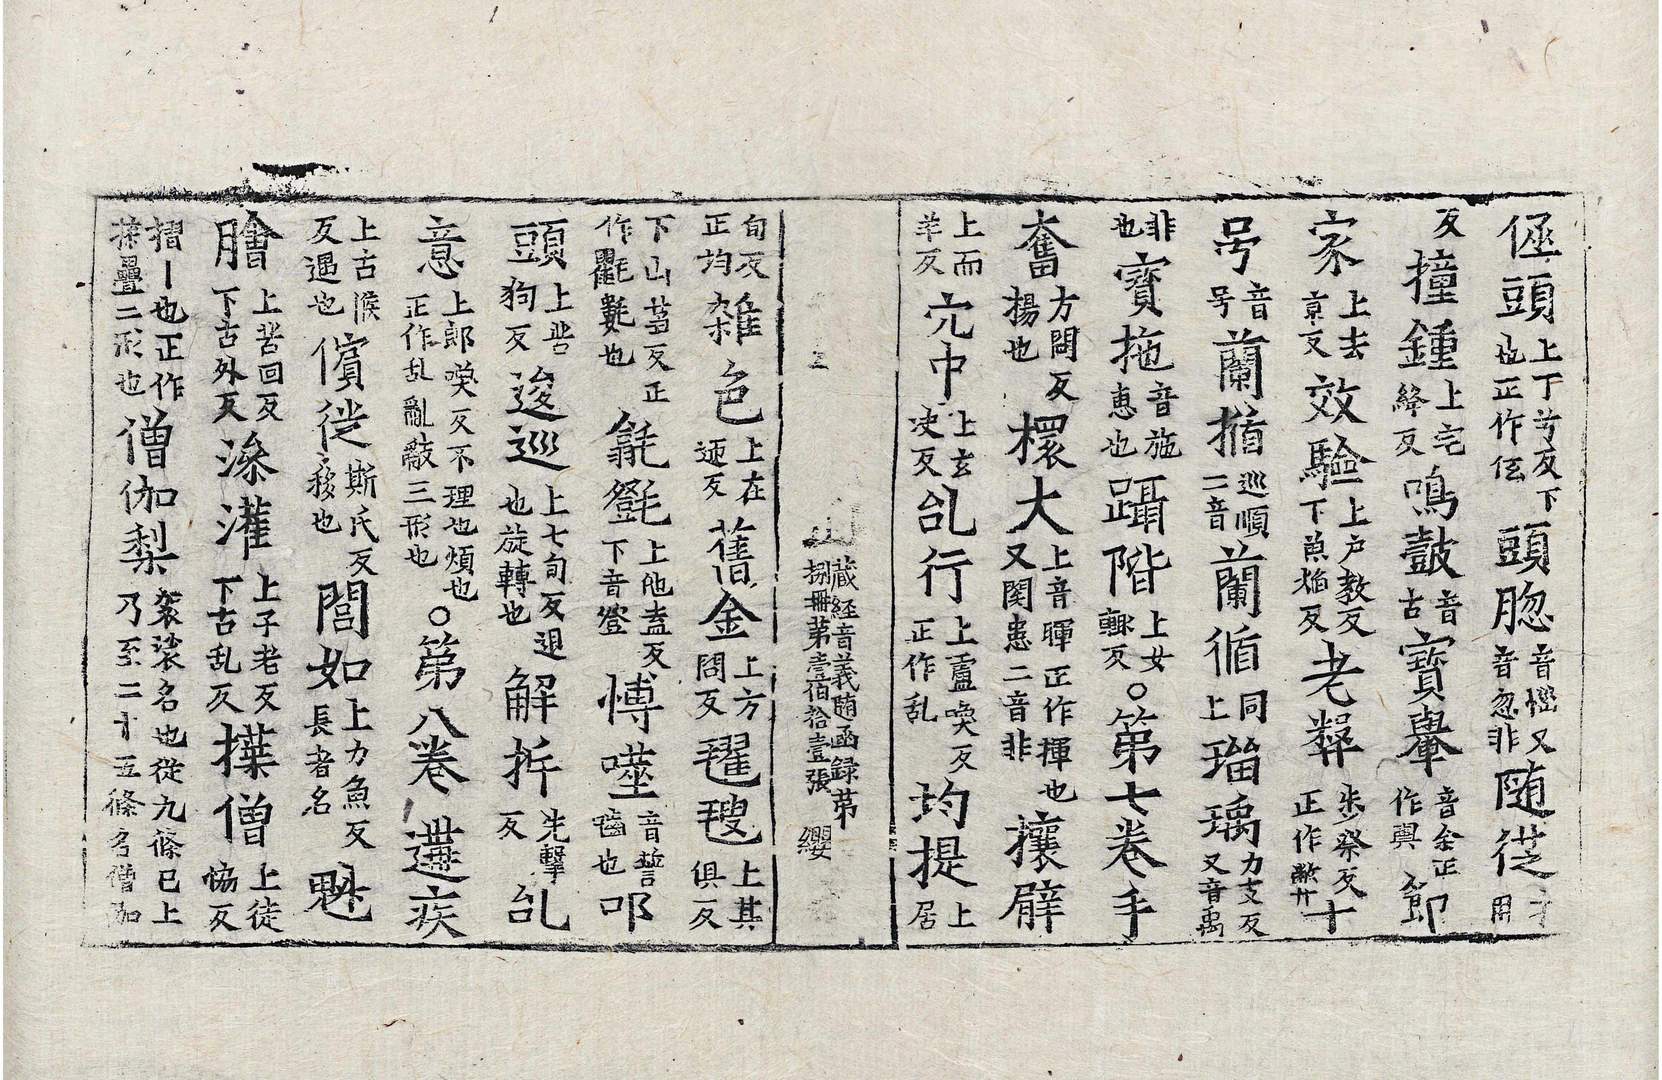 偓頭上丁兮反下也正作伭頭脃音惱又音忽非随𢓅才用
反撞鍾上宅絳反鳴鼓音古寳轝音余正作輿節
家上去章反效驗上户教反下魚焰反老㢢步祭反正作弊十
号音号蘭揗巡順二音蘭循同上瑙瑀力支反又音禹
非也寳拖音施恵也躡階上女輒反○第七卷手
奮方問反揚也櫰大上音暉正作揮也又関患二音非攘臂
上而羊反宂中上玄决反乩行上盧喚反正作乱均提上居
三 藏経音義随函録第捌冊第壹佰拾壹張 纓
旬反正均雜色上在迊反舊金上方問反𣰽㲣上其俱反
下山芻反正作氍𣯜也㲮㲪上他盍反下音登愽噬音誓嚙也叩
頭上苦狗反逡巡上七旬反退也旋轉也解折先擊反乩
意上郎喚反不理也煩也正作乱亂敽三形也○第八卷遘疾
上古候反遇也償徙斯氏反移也閭如上力魚反長者名魁
膾上苦回反下古外反澡灌上子老反下古乱反擛僧上徒恊反
摺丨也正作揲疊二形也僧伽梨袈裟名也從九條已上乃至二十五條名僧伽